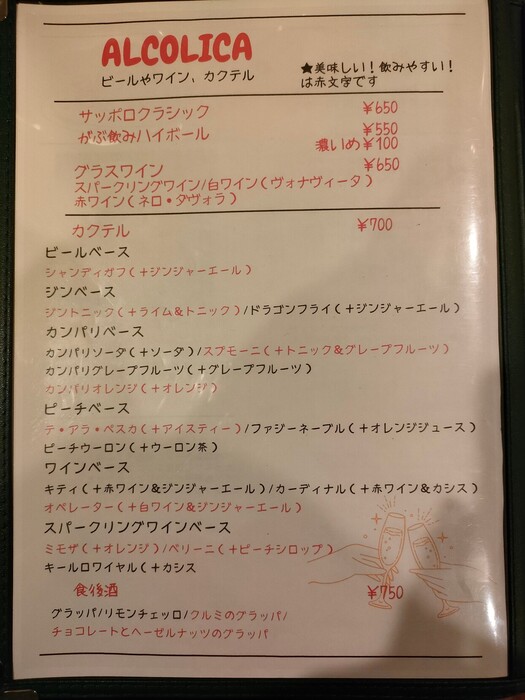 ALCOLICA
ビールやワイン、カクテル
★美味しい！飲みやすい！
は赤文字です
サッポロクラシック ¥650
がぶ飲みハイボール ¥550
濃いめ¥100
グラスワイン ¥650
スパークリングワイン/白ワイン（ヴォナヴィータ）
赤ワイン（ネロ・ダヴォラ）
カクテル ¥700
ビールベース
シャンディガフ（＋ジンジャーエール）
ジンベース
ジントニック（＋ライム＆トニック）/ドラゴンフライ（＋ジンジャーエール）
カンパリベース
カンパリソーダ（＋ソーダ）/スプモーニ（＋トニック＆グレープフルーツ）
カンパリグレープフルーツ（＋グレープフルーツ）
カンパリオレンジ（＋オレンジ）
ピーチベース
テ・アラ・ペスカ（＋アイスティー）/ファジーネーブル（＋オレンジジュース）
ピーチウーロン（＋ウーロン茶）
ワインベース
キティ（＋赤ワイン＆ジンジャーエール）/カーディナル（＋赤ワイン＆カシス）
オペレーター（＋白ワイン＆ジンジャーエール）
スパークリングワインベース
ミモザ（＋オレンジ）/ベリーニ（＋ピーチシロップ）
キールロワイヤル（＋カシス
食後酒 ¥750
グラッパ/リモンチェッロ/クルミのグラッパ/
チョコレートとヘーゼルナッツのグラッパ